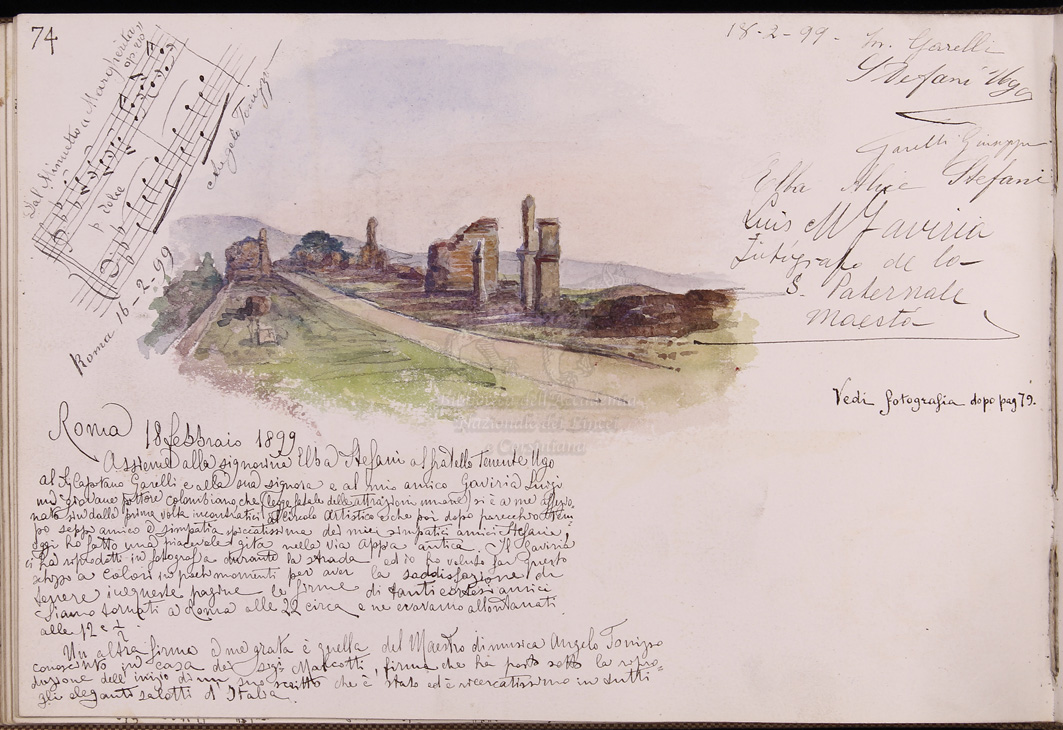 74
Dal Minuetto a Margherita
op. 20
p dolce
Angelo Tonizzo
Roma 16-2-99
18-2-99- M. Garelli
Stefani Ugo
Garelli Giuseppe
Elba Alice Stefani
Luis M Gaviria
Fotógrafo de la
S. Paternale
Maestà
Vedi fotografia dopo pag 79.
Roma 18 febbraio 1899
Assieme alla signorina Elba Stefani al fratello Tenente Ugo
al Sg Capitano Garelli e alla sua signora e al mio amico Gaviria Luigi
giovane pittore colombiano che (legge fatale delle attrazioni umane) si è a me affezio-
nato sin dalla prima volta incontratici al Circolo Artistico e che poi dopo parecchio tem-
po seppi amico e simpatia spiccatissima dei miei simpatici amici Stefani,
oggi ho fatto una piacevole gita nella via Appia antica. Il Gaviria
ci ha riprodotti in fotografia durante la strada ed io ho voluto far questo
schizzo a colori in pochi momenti per aver la soddisfazione di
tenere in queste pagine le firme di tanti cortesi amici
Siamo tornati a Roma alle 22 circa e ne eravamo allontanati
alle 12 e ½.
Un altra firma a me grata è quella del Maestro di musica Angelo Tonizzo
conosciuto in casa dei sigi Marcotti, firma che ha posto sotto la ripro-
duzione dell'inizio di un suo scritto che è stato ed è ricercatissimo in tutti
gli eleganti salotti d'Italia.